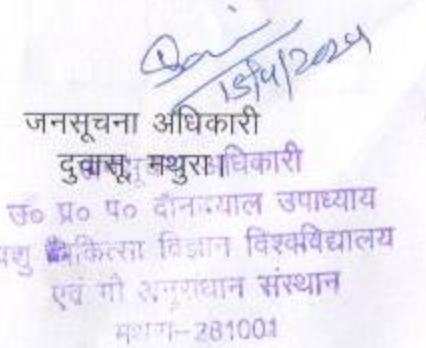 15/4/2024
जनसूचना अधिकारी
दुवासू, मथुरा। अधिकारी
उ० प्र० प० दीनदयाल उपाध्याय
पशु चिकित्सा विज्ञान विश्वविद्यालय
एवं गौ अनुसंधान संस्थान
मथुरा-281001